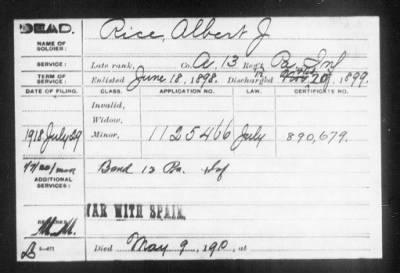 DEAD.
NAME OF SOLDIER: Rice, Albert J
SERVICE: Late rank, Co. A, 13 Reg't Pa Inf
TERM OF SERVICE: Enlisted June 18, 1898. Discharged 20, 1899.
DATE OF FILING. CLASS. APPLICATION NO. LAW. CERTIFICATE NO.
Invalid,
Widow,
1918 July 29 Minor, 1125466 July 890,679.
ADDITIONAL SERVICES: Band 13 Pa. Inf
WAR WITH SPAIN.
Died May 9, 190, at